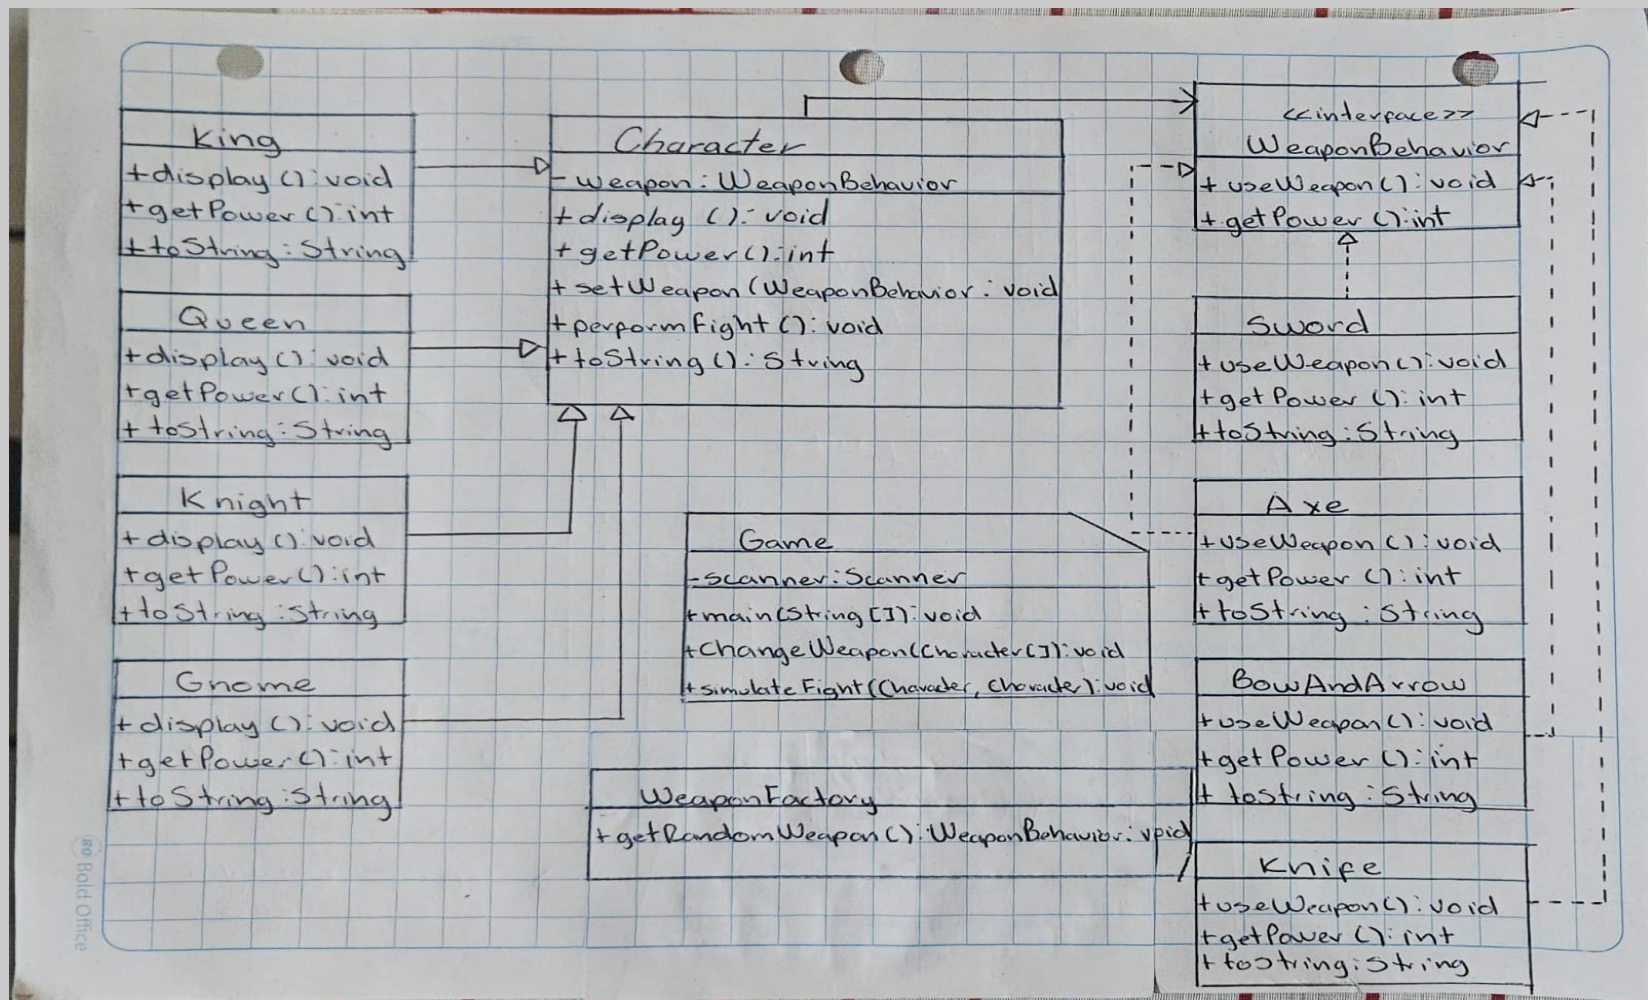 King
+display():void
+getPower():int
+toString:String
Queen
+display():void
+getPower():int
+toString:String
Knight
+display():void
+getPower():int
+toString:String
Gnome
+display():void
+getPower():int
+toString:String
Character
-weapon:WeaponBehavior
+display():void
+getPower():int
+setWeapon(WeaponBehavior:void
+performFight():void
+toString():String
Game
-scanner:Scanner
+main(String[]):void
+changeWeapon(Character[]):void
+simulateFight(Character, Character):void
WeaponFactory
+getRandomWeapon():WeaponBehavior:void
<<interface>>
WeaponBehavior
+useWeapon():void
+getPower():int
Sword
+useWeapon():void
+getPower():int
+toString:String
Axe
+useWeapon():void
+getPower():int
+toString:String
BowAndArrow
+useWeapon():void
+getPower():int
+toString:String
Knife
+useWeapon():void
+getPower():int
+toString:String
80 Bold Office